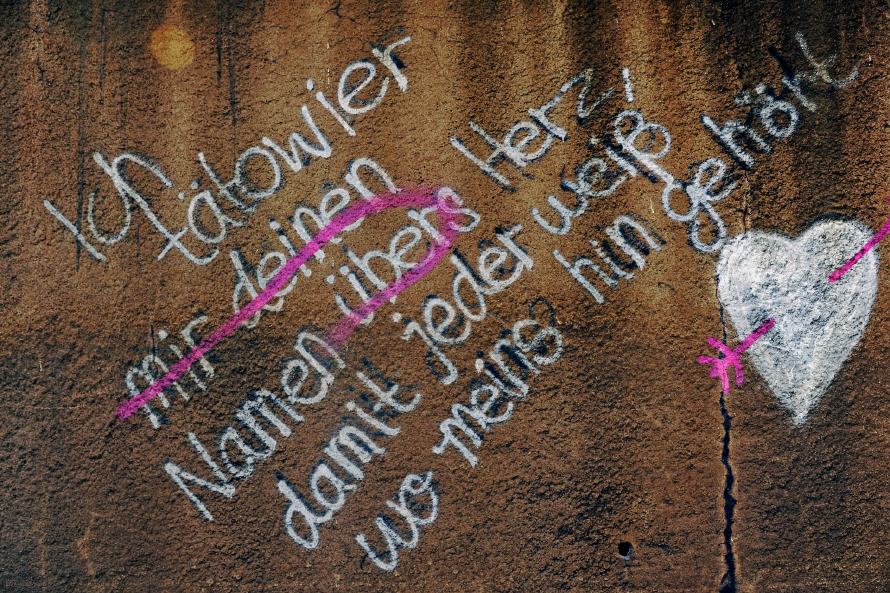 Ich tätowier
mir deinen
Namen übers Herz,
damit jeder weiß
wo meins hin gehört